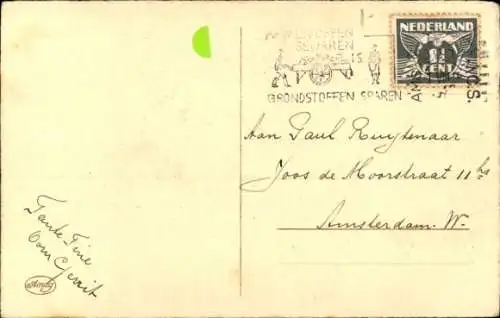 AFVALSTOFFEN
BEWAREN
IS
GRONDSTOFFEN SPAREN
NEDERLAND
1½
CENT
AMS
C.S.
Aan Paul Ruytenaar
Joos de Moorstraat 11 hs
Amsterdam. W.
Tante Fine
Oom Gerrit
Amag